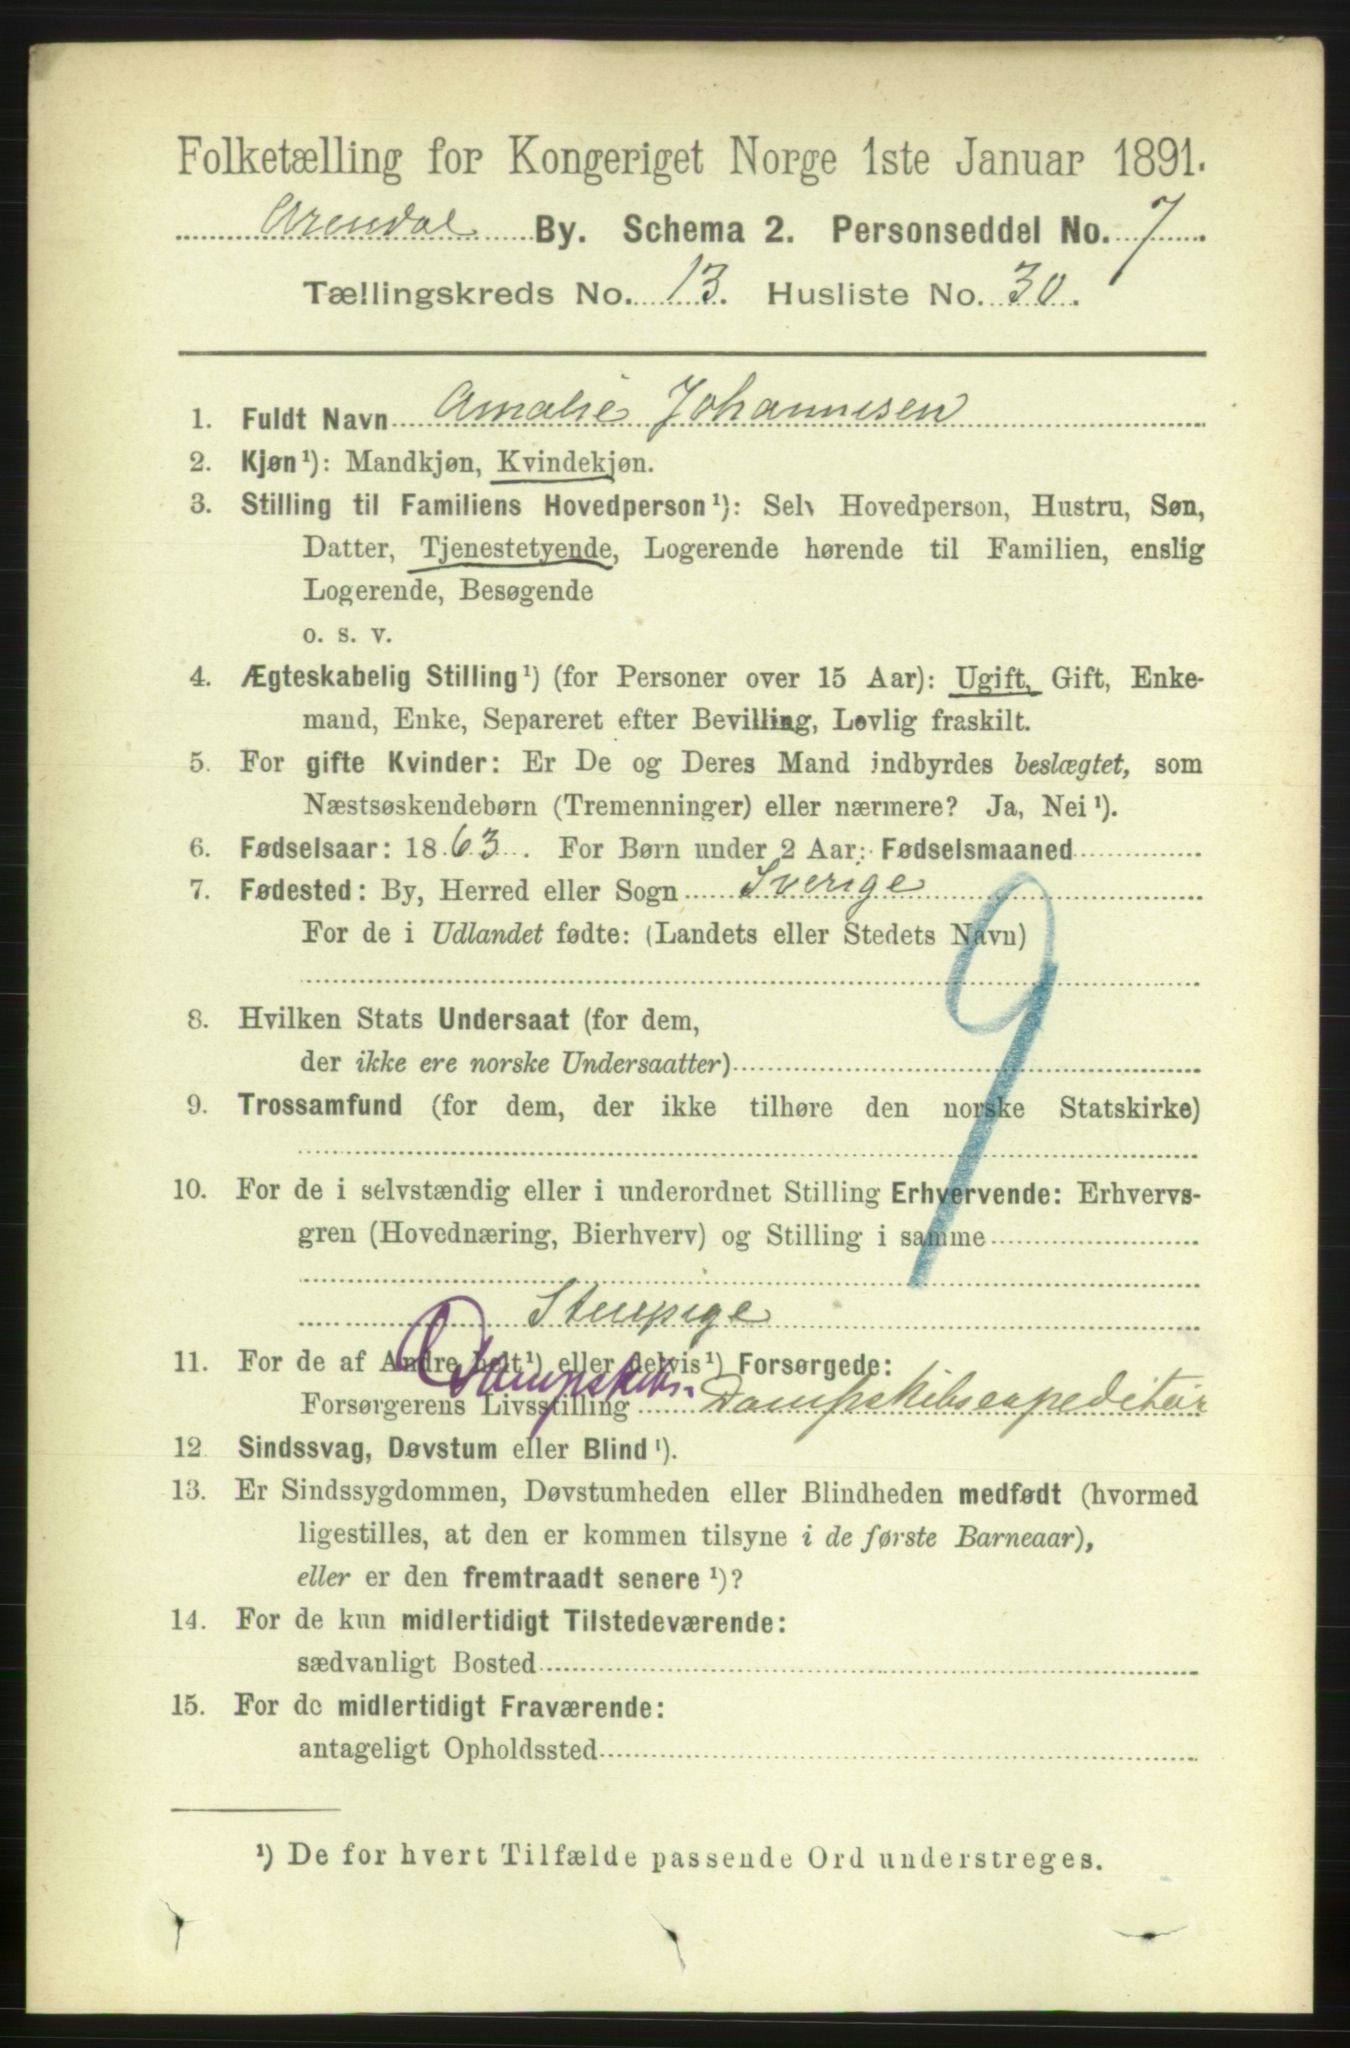 Folketælling for Kongeriget Norge 1ste Januar 1891.
Arendal By. Schema 2. Personseddel No. 7
Tællingskreds No. 13. Husliste No. 30.
1. Fuldt Navn Amalie Johannesen
2. Kjøn¹): Mandkjøn, Kvindekjøn.
3. Stilling til Familiens Hovedperson¹): Selv Hovedperson, Hustru, Søn,
Datter, Tjenestetyende, Logerende hørende til Familien, enslig
Logerende, Besøgende
o. s. v.
4. Ægteskabelig Stilling¹) (for Personer over 15 Aar): Ugift, Gift, Enke-
mand, Enke, Separeret efter Bevilling, Lovlig fraskilt.
5. For gifte Kvinder: Er De og Deres Mand indbyrdes beslægtet, som
Næstsøskendebørn (Tremenninger) eller nærmere? Ja, Nei¹).
6. Fødselsaar: 1863. For Børn under 2 Aar: Fødselsmaaned
7. Fødested: By, Herred eller Sogn Sverige
For de i Udlandet fødte: (Landets eller Stedets Navn)
9
8. Hvilken Stats Undersaat (for dem,
der ikke ere norske Undersaatter)
9. Trossamfund (for dem, der ikke tilhøre den norske Statskirke)
10. For de i selvstændig eller i underordnet Stilling Erhvervende: Erhvervs-
gren (Hovednæring, Bierhverv) og Stilling i samme
Stuepige
11. For de af Andre helt¹) eller delvis¹) Forsørgede:
Dampskibs-
Forsørgerens Livsstilling Dampskibsexpeditør
12 Sindssvag, Døvstum eller Blind¹).
13. Er Sindssygdommen, Døvstumheden eller Blindheden medfødt (hvormed
ligestilles, at den er kommen tilsyne i de første Barneaar),
eller er den fremtraadt senere¹)?
14. For de kun midlertidigt Tilstedeværende:
sædvanligt Bosted
15. For de midlertidigt Fraværende:
antageligt Opholdssted
¹) De for hvert Tilfælde passende Ord understreges.